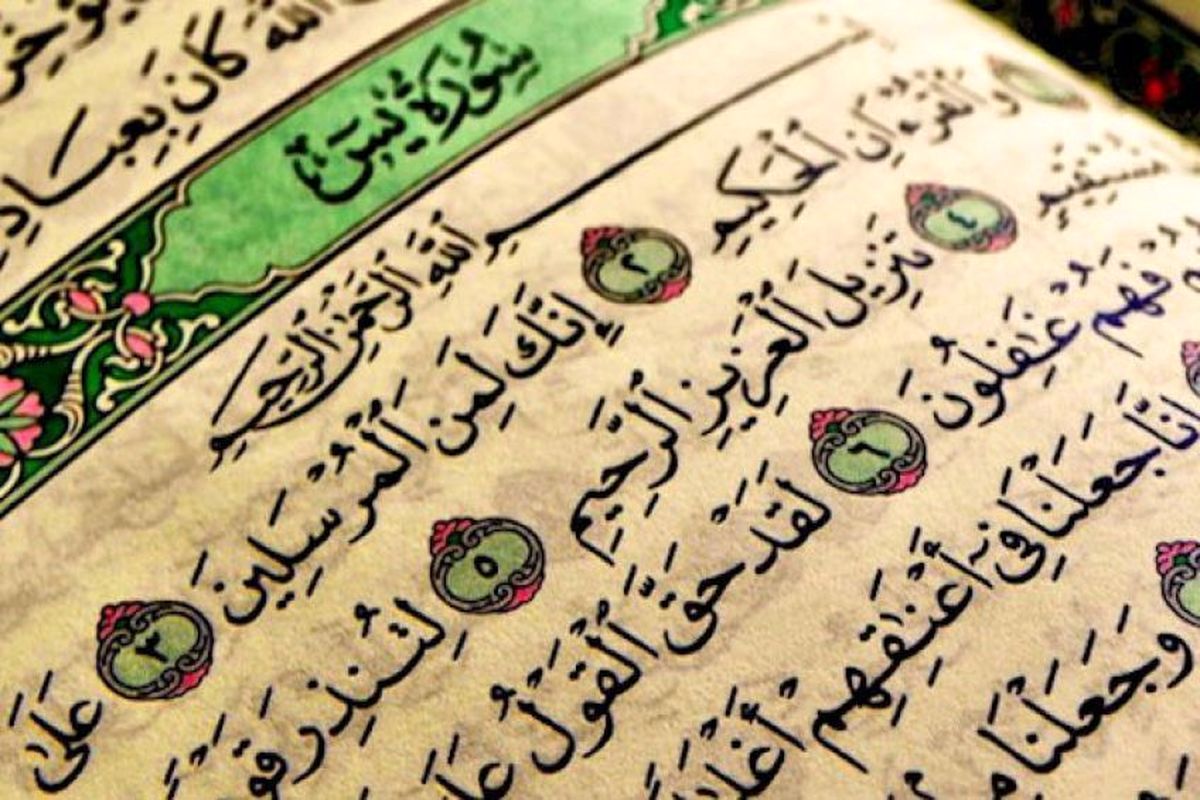 ٱللَّهَ كَانَ بِعِبَادِ
سُورَةُ يسٓ
بِسْمِ ٱللَّهِ ٱلرَّحْمَٰنِ ٱلرَّحِيمِ
وَٱلْقُرْءَانِ ٱلْحَكِيمِ ٢ إِنَّكَ لَمِنَ ٱلْمُرْسَلِينَ ٣ عَلَىٰ
مُّسْتَقِيمٍ ٤ تَنزِيلَ ٱلْعَزِيزِ ٱلرَّحِيمِ ٥ لِتُنذِرَ قَوْ
فَهُمْ غَٰفِلُونَ ٦ لَقَدْ حَقَّ ٱلْقَوْلُ عَلَ
إِنَّا جَعَلْنَا فِىٓ أَعْنَٰقِهِمْ أَغْلَٰ
وَجَعَلْنَا مِنۢ